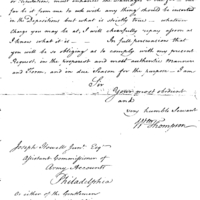 be it from me to ask with any thing should be inserted
in the Deposition but what is strictly true – whatever
charge you may be at, I will chearfully repay as soon as
I know what it is — In full persuasion that
you will be so obliging as to comply with my present
Request, in the proper and most authentic manner
and Form, and in due Season for the purpose – I am
Sir
Your most obedient
and
very humble Servant
Wm Thompson
Joseph Howell Junr Esqr
Assistant Commissioner of
Army Accounts
Philadelphia
Or either of the Gentlemen